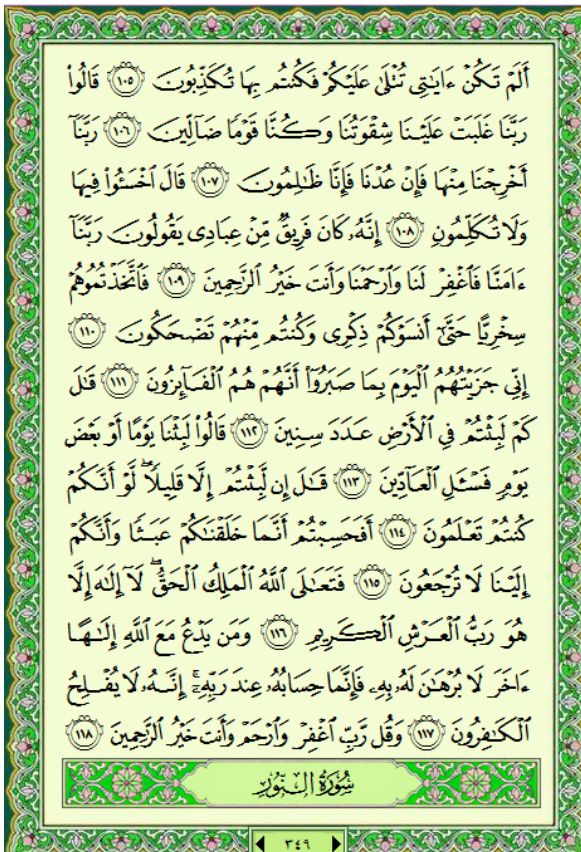 أَلَمْ تَكُنْ ءَايَـٰتِى تُتْلَىٰ عَلَيْكُمْ فَكُنتُم بِهَا تُكَذِّبُونَ ١٠٥ قَالُوا۟
رَبَّنَا غَلَبَتْ عَلَيْنَا شِقْوَتُنَا وَكُنَّا قَوْمًا ضَآلِّينَ ١٠٦ رَبَّنَآ
أَخْرِجْنَا مِنْهَا فَإِنْ عُدْنَا فَإِنَّا ظَـٰلِمُونَ ١٠٧ قَالَ ٱخْسَـُٔوا۟ فِيهَا
وَلَا تُكَلِّمُونِ ١٠٨ إِنَّهُۥ كَانَ فَرِيقٌ مِّنْ عِبَادِى يَقُولُونَ رَبَّنَآ
ءَامَنَّا فَٱغْفِرْ لَنَا وَٱرْحَمْنَا وَأَنتَ خَيْرُ ٱلرَّٰحِمِينَ ١٠٩ فَٱتَّخَذْتُمُوهُمْ
سِخْرِيًّا حَتَّىٰٓ أَنسَوْكُمْ ذِكْرِى وَكُنتُم مِّنْهُمْ تَضْحَكُونَ ١١٠
إِنِّى جَزَيْتُهُمُ ٱلْيَوْمَ بِمَا صَبَرُوٓا۟ أَنَّهُمْ هُمُ ٱلْفَآئِزُونَ ١١١ قَـٰلَ
كَمْ لَبِثْتُمْ فِى ٱلْأَرْضِ عَدَدَ سِنِينَ ١١٢ قَالُوا۟ لَبِثْنَا يَوْمًا أَوْ بَعْضَ
يَوْمٍ فَسْـَٔلِ ٱلْعَآدِّينَ ١١٣ قَـٰلَ إِن لَّبِثْتُمْ إِلَّا قَلِيلًا ۖ لَّوْ أَنَّكُمْ
كُنتُمْ تَعْلَمُونَ ١١٤ أَفَحَسِبْتُمْ أَنَّمَا خَلَقْنَـٰكُمْ عَبَثًا وَأَنَّكُمْ
إِلَيْنَا لَا تُرْجَعُونَ ١١٥ فَتَعَـٰلَى ٱللَّهُ ٱلْمَلِكُ ٱلْحَقُّ ۖ لَآ إِلَـٰهَ إِلَّا
هُوَ رَبُّ ٱلْعَرْشِ ٱلْكَرِيمِ ١١٦ وَمَن يَدْعُ مَعَ ٱللَّهِ إِلَـٰهًا
ءَاخَرَ لَا بُرْهَـٰنَ لَهُۥ بِهِۦ فَإِنَّمَا حِسَابُهُۥ عِندَ رَبِّهِۦٓ ۚ إِنَّهُۥ لَا يُفْلِحُ
ٱلْكَـٰفِرُونَ ١١٧ وَقُل رَّبِّ ٱغْفِرْ وَٱرْحَمْ وَأَنتَ خَيْرُ ٱلرَّٰحِمِينَ ١١٨
سُورَةُ النُّورِ
٣٤٩